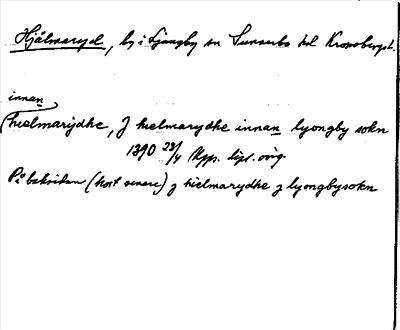 Hjälmaryd, by i Ljungby sn Sunnerbo hd Kronobergsl.
innan
hielmarydhe, J hielmarydhe innan lyongby sokn
1390 23/4 Upp. dipl. orig.
På baksidan (kort senare) j hielmarydhe j lyongbysokn